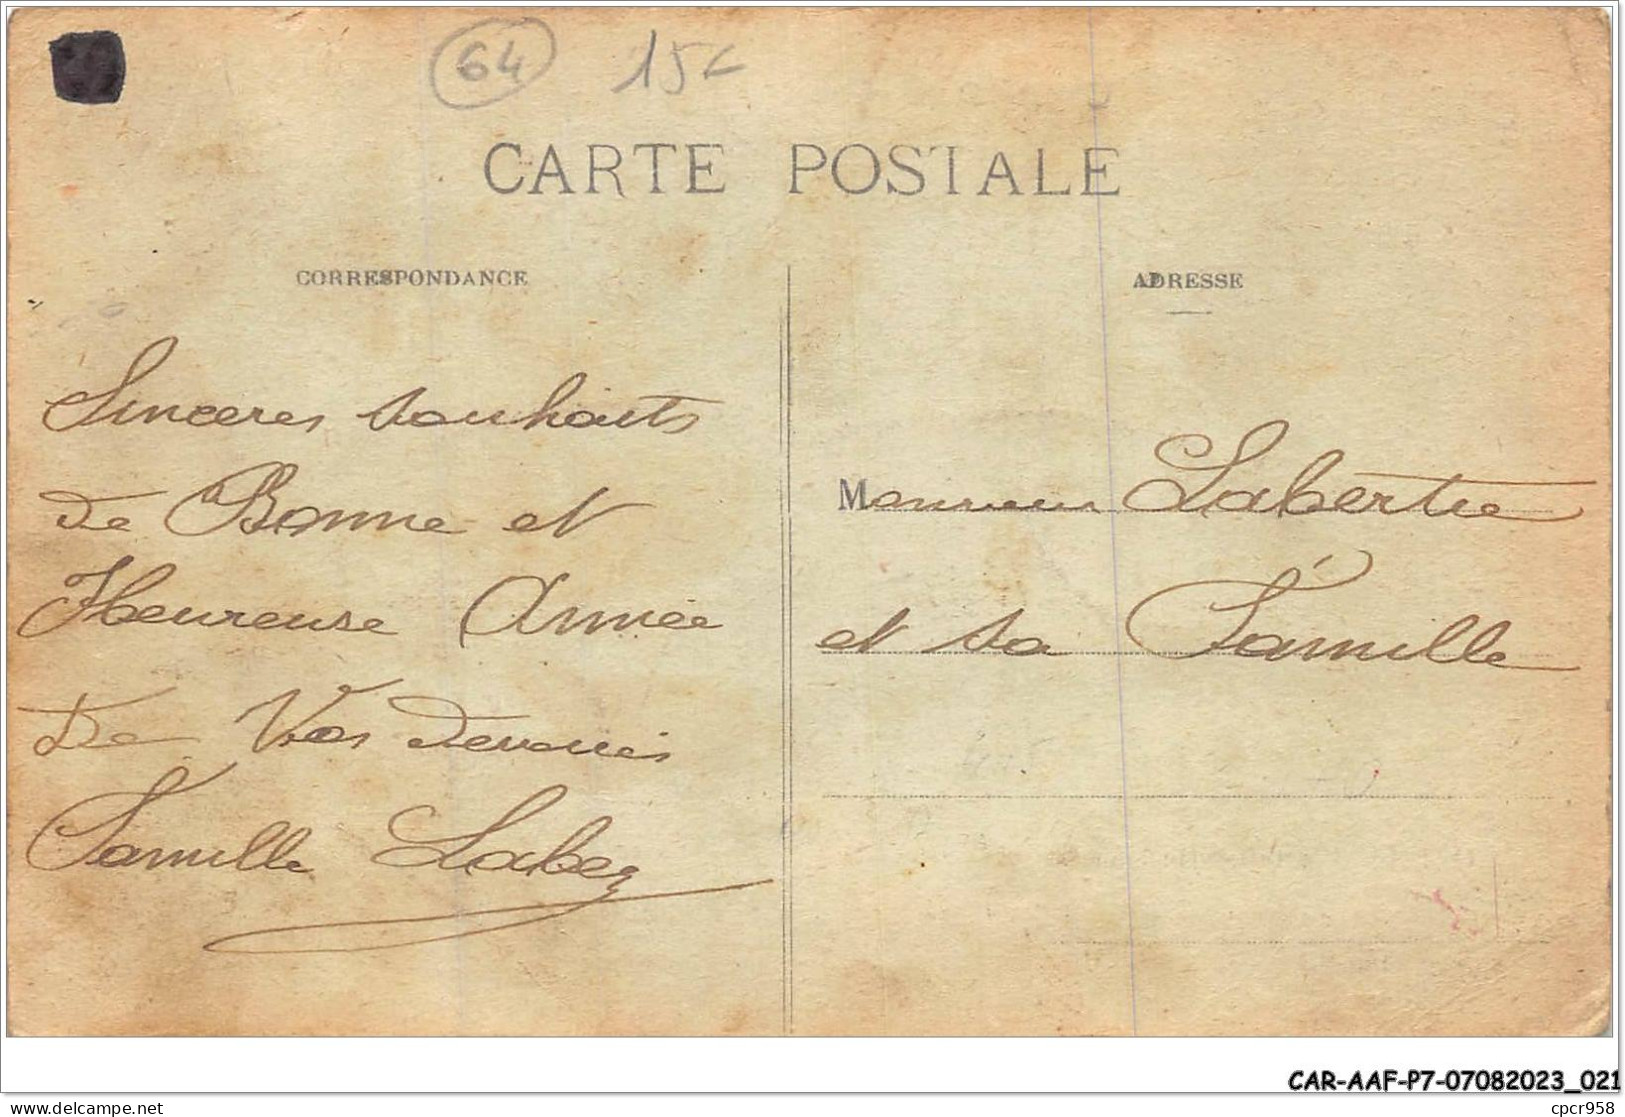 64 15c
CARTE POSTALE
CORRESPONDANCE
Sinceres souhaits
de Bonne et
Heureuse Année
De Vos devoués
Famille Labez
ADRESSE
Monsieur Labertie
et sa Famille
CAR-AAF-P7-07082023_021
cpcr958